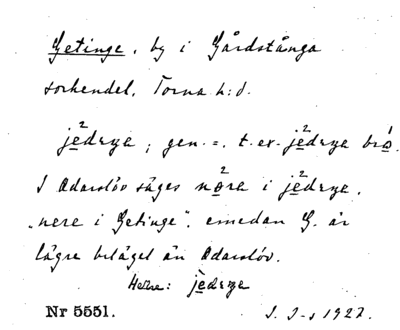 Getinge, by i Gårdstånga
sockendel, Torna h:d.
jedzya; gen. =. t. ex. jedzya bro.
I Odarslöv säges nora i jedzya,
"nere i Getinge", emedan G. är
lägre beläget än Odarslöv.
jedzya
Nr 5551.
1927.